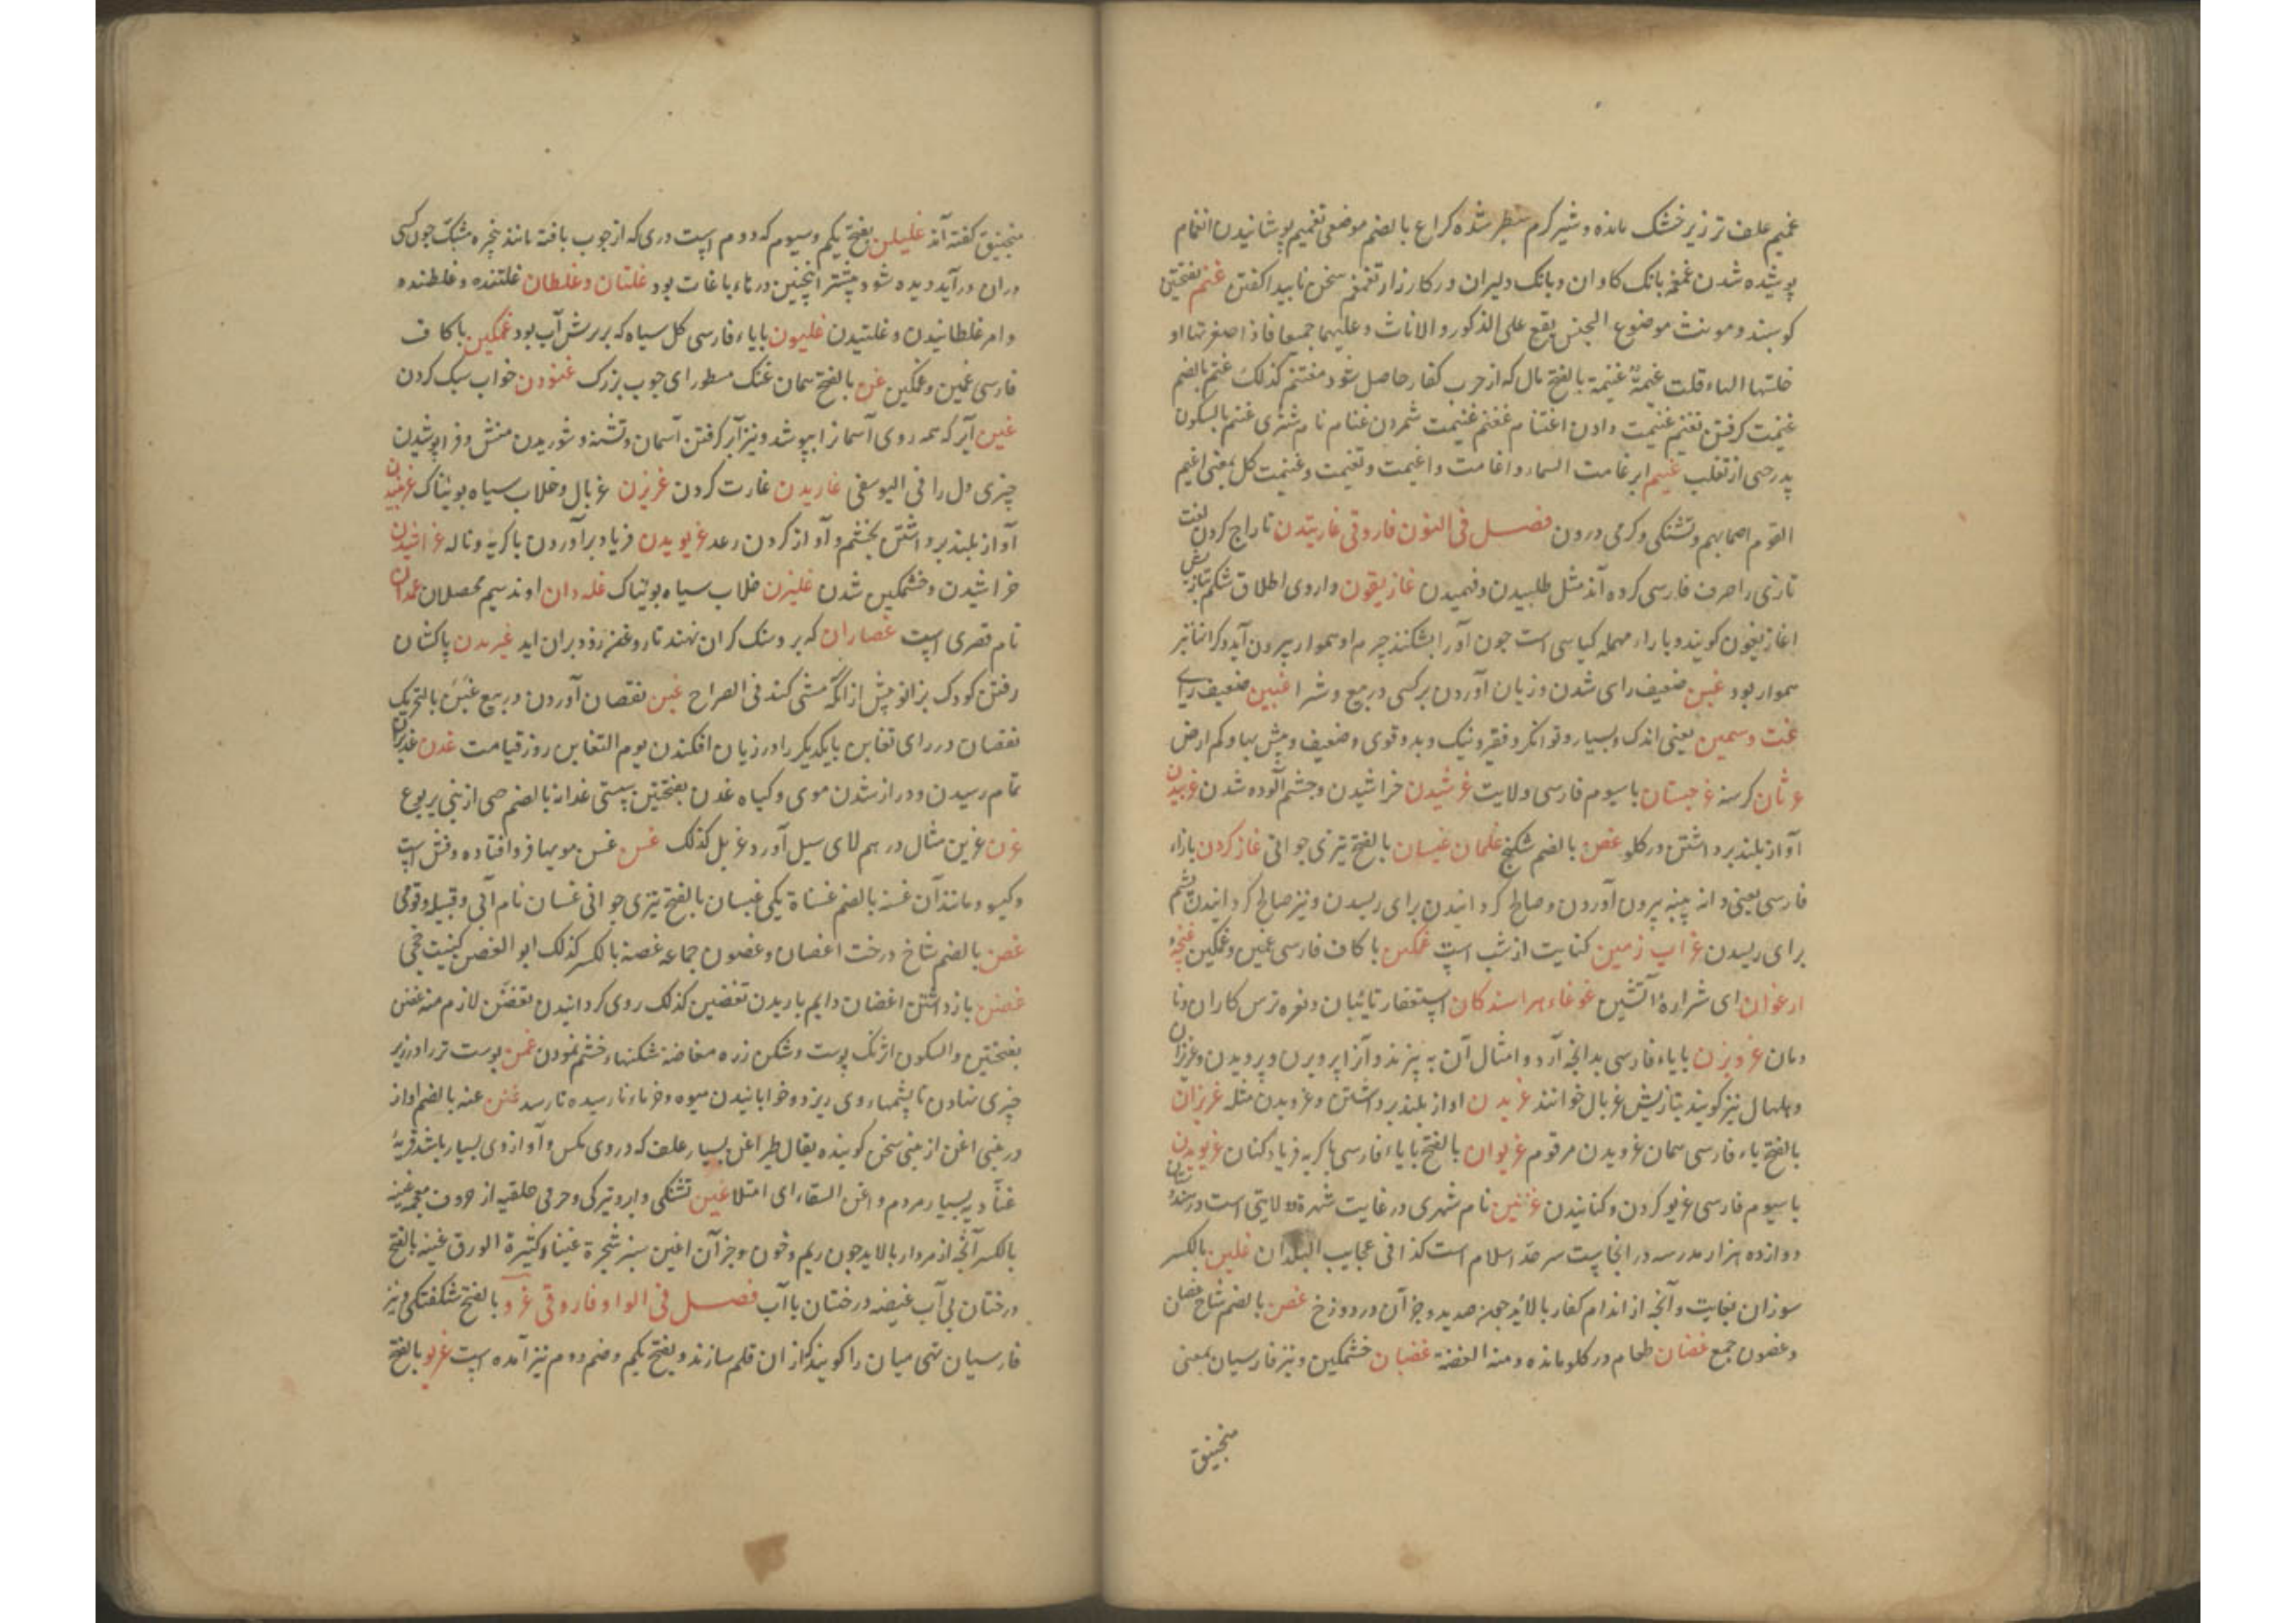 غمیم علف تر زیر خشک مانده و شیر گرم سطبر شده کراع بالضم موضعی تغمیم پوشانیدن انغمام
پوشیده شدن غمغمه بانک کاوان و بانک دلیران در کارزار تغمغم سخن ناپیدا کفتن غنم بفتحتین
کوسبند و مونث موضوع الجنس یقع علی الذکور و الاناث و علیهما جمیعا فاذا صغرتها او
خلتها الهاء قلت غنیمة غنیمة بالفتح مال که از حرب کفار حاصل شود مغتنم کذلک غنم بالضم
غنیمت کرفتن تغنیم غنیمت دادن اغتنام تغنم غنیمت شمردن غنام نام شتری غنم بالسکون
پدر حی از تغلب غیم ابر غامت السماء و اغامت و اغیمت و تغیمت و غیمت کل بمعنی اغیم
القوم اصابهم و تشنکی و کرمی درون فصل فی النون فاروقی غارتیدن تاراج کردن لغت
تازی را صرف فارسی کرده اند مثل طلبیدن و فهمیدن غازیقون داروی اطلاق شکم
اغازیغون کویند و با راء مهمله کیاسی است چون آن را بشکنند جرم او هموار بیرون آید
هموار بود غبن ضعیف رای شدن و زیان آوردن بر کسی در بیع و شرا غبین ضعیف رای
غث و سمین یعنی اندک و بسیار و توانکر و فقیر و نیک و بد و قوی و ضعیف و بیش بها و کم ارض
غرثان کرسنه غرجستان با سیوم فارسی ولایت غرشیدن خراشیدن و چشم آلوده شدن
آواز بلند برداشتن در کلو غصن بالضم شکنج غلمان غیسان بالفتح تیزی جوانی غاز کردن بازاء
فارسی یعنی دانه پنبه بیرون آوردن و صالح کردانیدن برای ریسدن و نیز صالح کردانیدن پشم
برای ریسدن غراب زمین کنایت از شب است غمکین با کاف فارسی غمین و غمکین غنچهٔ
ارغوان ای شرارهٔ آتشین غوغاء هراسندکان استغفار تائبان و نعره ترس کاران و نا
دمان غرویزن بایاء فارسی بدانچه آرد و امثال آن به بیزند و آن را پرویزن و پرویدن
و هلهال نیز کویند بتازیش غربال خوانند غریدن اواز بلند برداشتن و غرویدن مثله غریزان
بالفتح یاء فارسی همان غرویدن مرقوم غریوان بالفتح بایاء فارسی باکریه فریاد کنان غریویدن
با سیوم فارسی غریو کردن و کنانیدن غزنین نام شهری در غایت شهرة و ولایتی است
دوازده هزار مدرسه در انجاست سر حد اسلام است کذا فی عجایب البلدان غلین بالکسر
سوزان بغایت و آنچه از اندام کفار بالاید جمله صدید و جز آن در دوزخ غصن بالضم شاخ
و غصون جمع غصان طعام در کلو مانده و منه الغصة غضبان خشمکین و نیز فارسیان بمعنی
منجنیق
منجنیق کفته اند غلیلن بفتح یکم و سیوم که دوم است دری که از چوب بافته مانند پنجره مشبک چون کسی
دران درآید دیده شود و بیشتر اینچنین درهاء باغات بود غلتان و غلطان غلتنده و غلطنده
و امر غلطانیدن و غلتیدن غلیون بایاء فارسی کل سیاه که بر رش آب بود غمکین با کاف
فارسی غمین و غمکین غن بالفتح همان غنک مسطور ای چوب بزرک غنودن خواب سبک کردن
غین آبر که همه روی آسمان را بپوشد و نیز آبر کرفتن آسمان و تشنه و شوریدن منش و فراپوشیدن
چیزی دل را فی الیوسفی غاریدن غارت کردن غریزن غربال و خلاب سیاه بویناک
آواز بلند برداشتن بخشم و آواز کردن رعد غریویدن فریاد برآوردن باکریه و ناله غراشیدن
خراشیدن و خشمکین شدن غلیزن خلاب سیاه بویناک غله دان اوند سیم محصلان غمدان
نام قصری است غصاران که برو سنک کران نهند تا روغن زود بران اید غیریدن پاکشان
رفتن کودک بزانو پیش ازانکه مشی کند فی الصراح غبن نقصان آوردن در بیع غبن بالتحریک
نقصان در رای تغابن بایکدیکر را در زیان افکندن یوم التغابن روز قیامت غدن
تمام رسیدن و دراز شدن موی و کیاه غدن بفتحتین سستی غدانه بالضم حی از بنی یربوع
غرن غرین مثال درهم لای سیل آورد غریل کذلک غسن غسن مویها فرو افتاده و فش است
و کیسو و مانند آن غسنه بالضم غسناة یکی غیسان بالفتح تیزی جوانی غسان نام آبی و قبیله و قومی
غصن بالضم شاخ درخت اغصان و غصون جماعه غصنة بالکسر کذلک ابو الغصن کنیت جحی
غضن باز داشتن اغضان دایم باریدن تغضین کذلک روی کردانیدن تغضن لازم منه غضن
بفتحتین والسکون اژنک پوست و شکن زره مغاضنه شکنها و خشم نمودن غمن پوست تر را در زیر
چیزی نهادن تا پشمهاء وی ریزد و خوابانیدن میوه و خرماء نارسیده تا رسد غنن غنه بالضم اواز
در بینی اغن از بینی سخن کوینده یقال طیر اغن بسیار علف که در وی مکس و آواز وی بسیار باشد قریهٔ
غناء دیه بسیار مردم و اغن السقاء ای امتلا غین تشنکی و ابر و تیرکی و حرفی حلقیه از حروف معجمه غینه
بالکسر آنچه از مردار بالاید چون ریم و خون و جز آن اغین سبز شجرة غیناء کثیرة الورق غینه بالفتح
درختان بی آب غیضه درختان با آب فصل فی الواو فاروقی غرو بالفتح شکفتکی و نیز
فارسیان تهی میان را کویند کز ان قلم سازند و بفتح یکم و ضم دوم نیز آمده است غریو بالفتح